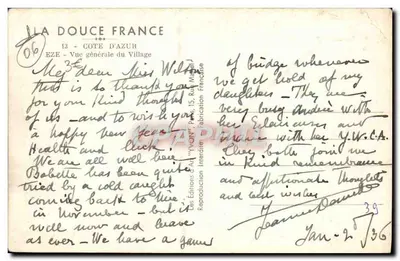 LA DOUCE FRANCE
13 - COTE D'AZUR
EZE - Vue générale du Village
06
My dear Miss Wilson
this is to thank you
for your kind thought
of us - and to wish you
a happy new year
Health and luck
We are all well here
Bobette has been quite
tried by a cold caught
coming back to Nice
in November - but is
well now and brave
as ever - We have a game
15, Rue
Reproduction Interdite - Fabrication Française
of bridge whenever
we get hold of my
daughters - They are
very busy with
her and
with her Y.W.C.A.
They both join me
in kind remembrance
and affectionate thoughts
and best wishes
Jan - 2 /36
35